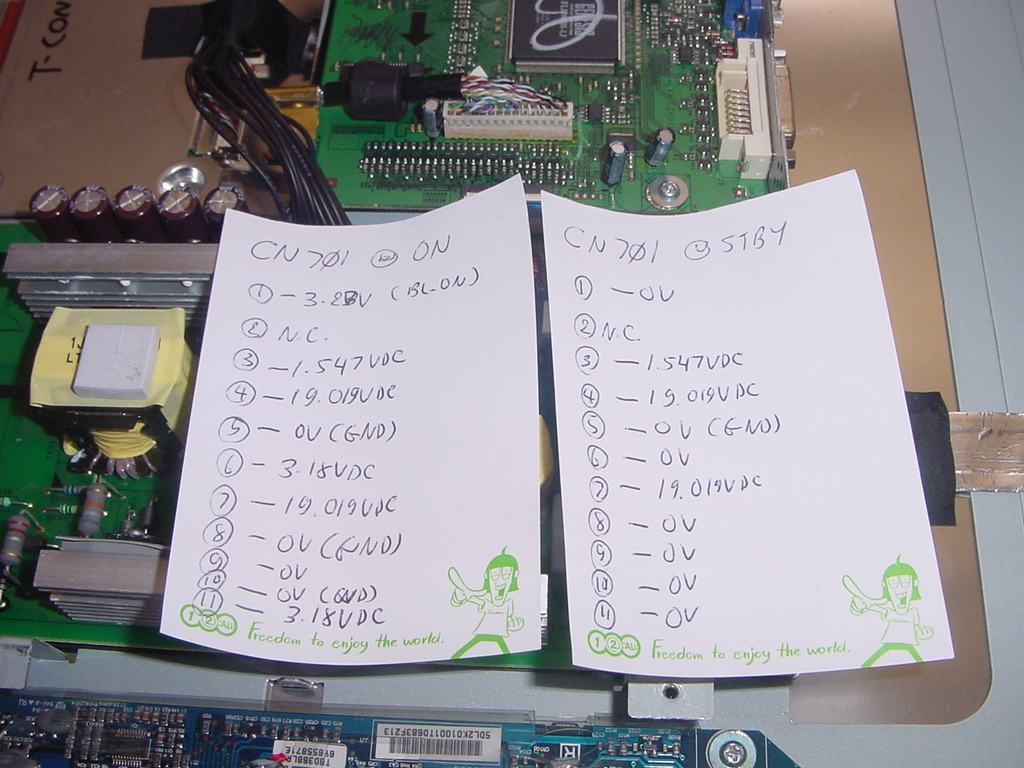 T-CON
CN701 @ ON
① - 3.28V (BL-ON)
② N.C.
③ - 1.547VDC
④ - 19.019VDC
⑤ - 0V (GND)
⑥ - 3.18VDC
⑦ - 19.019VDC
⑧ - 0V (GND)
⑨ - 0V
⑩ - 0V (GND)
⑪ - 3.18VDC
1 2 CALL
Freedom to enjoy the world.
CN701 @ STBY
① - 0V
② N.C.
③ - 1.547VDC
④ - 19.019VDC
⑤ - 0V (GND)
⑥ - 0V
⑦ - 19.019VDC
⑧ - 0V
⑨ - 0V
⑩ - 0V
⑪ - 0V
1 2 CALL
Freedom to enjoy the world.